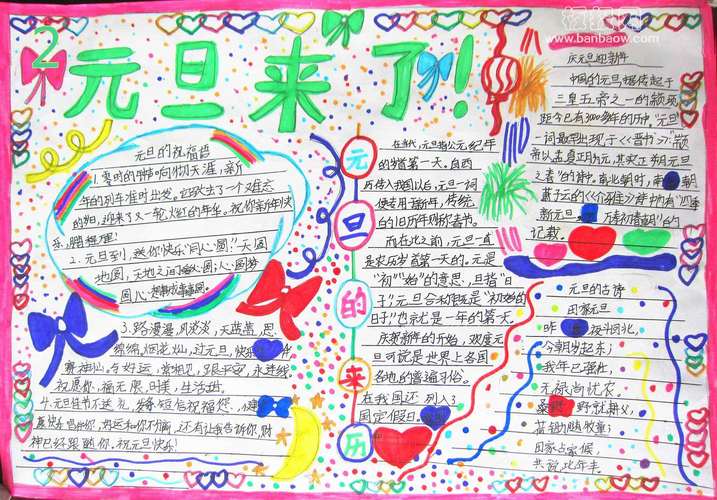 2
元旦来了!
报报网
www.banbaow.com
元旦的祝福语
1.零时的钟响彻天涯,新
年的列车准时出发。它驮去了一个难忘
的旧,迎来了又一轮火红的年华。祝你新年快
乐
2.元旦到,送你快乐"同心圆":天圆
地圆,天地之间
圆
3.路漫漫,风淡淡,天蓝蓝,思
绵绵,烟花灿,过元旦,快乐
祝愿你,福无限,时美,生活甜。
4.元旦佳节不送礼,发条短信祝福您。
神已经跟随你。祝元旦快乐!
元旦的来历
在古代,元旦指公元纪年
的岁首第一天。自西
历传入我国以后,元旦一词
便专用于新年,传统
的旧历年则称春节。
而在此之前,元旦一直
是农历岁首第一天的。元是
"初""始"的意思,旦指"日
子",元旦合称即是"初始的
日子"也就是一年的第一天。
庆贺新年的开始,欢度元
旦可说是世界上各国
各地的普遍习俗。
在我国还列入了
国定假日。
庆元旦迎新年
中国的元旦,据传起于
三皇五帝之一的颛顼
距今已有3000多年的历史。"元旦"
一词最早出现于<<晋书>>:
帝以孟夏正月为元,其实正朔元旦
之春"的诗中。南北朝时,南
萧子云的<<介雅>>诗中也有"四季
新元旦,万寿初春朝"的
记载。
元旦的古诗
田家元旦
昨夜斗回北,
今朝岁起东;
我年已强仕,
无禄尚忧农。
桑野就耕父,
荷锄随牧童;
田家占气候,
共说此年丰。